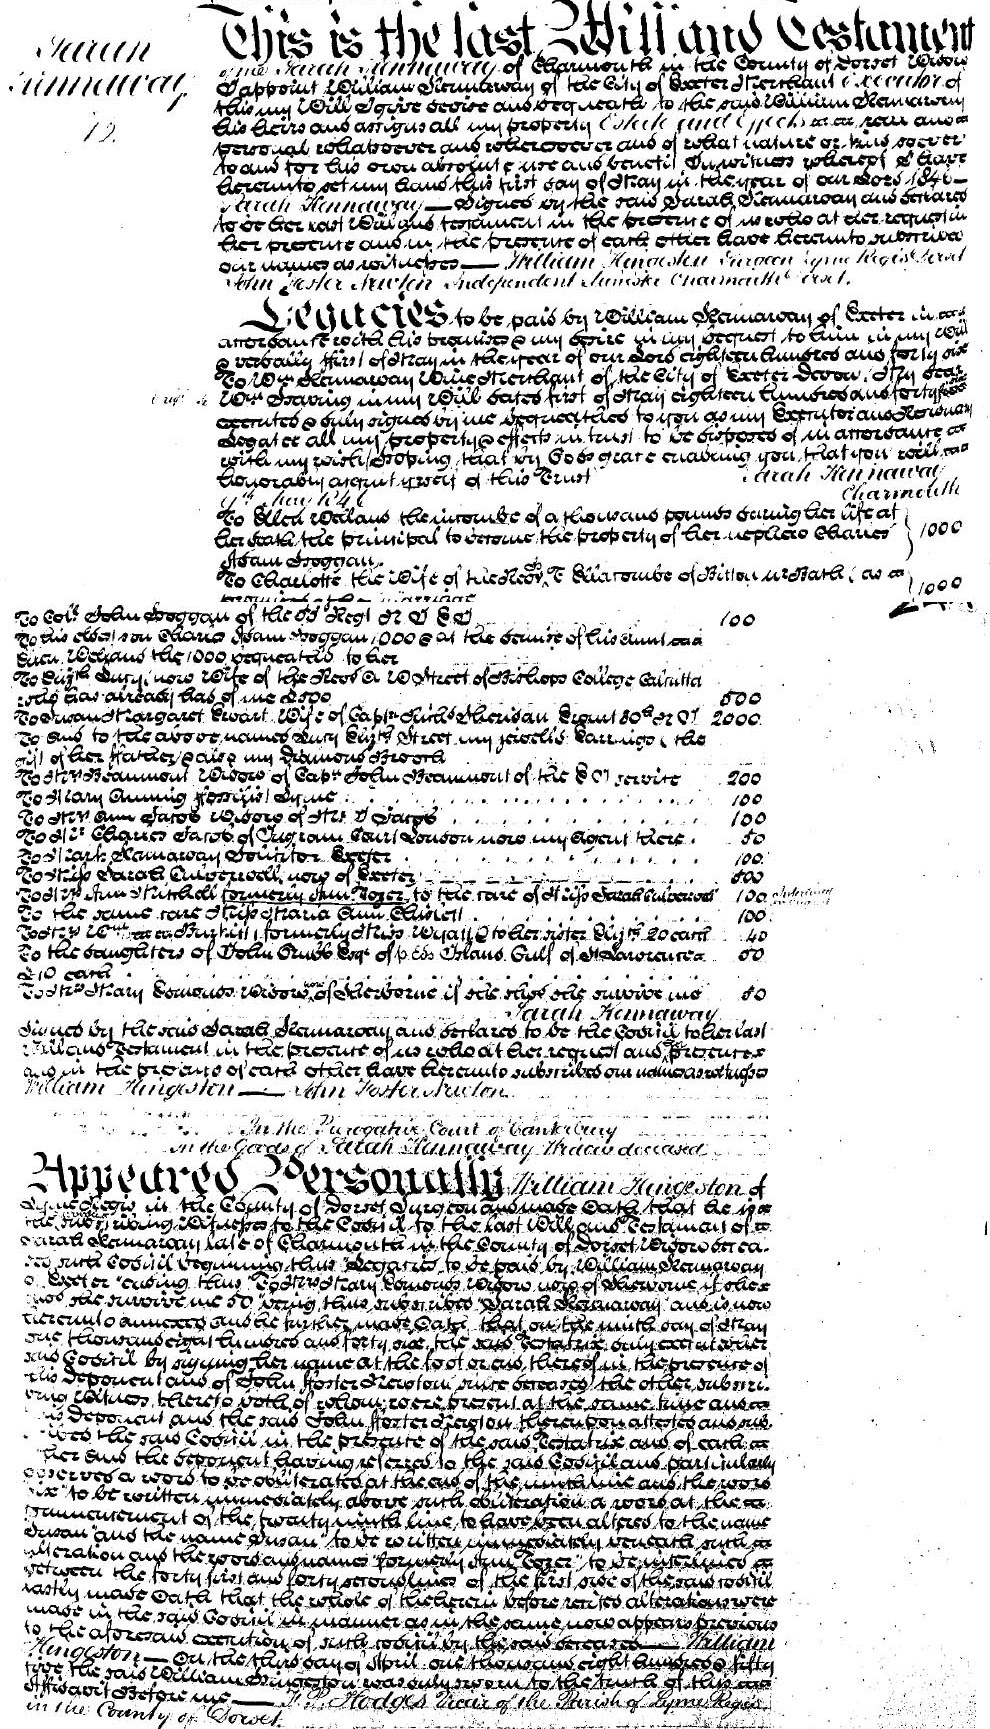 Sarah
Hennaway
12.
This is the last Will and Testament
of me Sarah Hennaway of Charmouth in the County of Dorset Widow
I appoint William Hennaway of the City of Exeter Merchant Executor of
this my Will I give devise and bequeath to the said William Hennaway
his heirs and assigns all my property Estate and Effects real and
personal whatsoever and wheresoever and of what nature or kind soever
to and for his own absolute use and benefit In witness whereof I have
hereunto set my hand this first day of May in the year of our Lord 1846 —
Sarah Hennaway — Signed by the said Sarah Hennaway and declared
to be her last Will and testament in the presence of us who at her request in
her presence and in the presence of each other have hereunto subscribed
our names as witnesses — William Hingeston Surgeon Lyme Regis Dorset
John Foster Newton Independent Minister Charmouth Dorset.
Legacies to be paid by William Hennaway of Exeter in
accordance with his promise & my desire in my bequest to him in my Will
& verbally first of May in the year of our Lord eighteen hundred and forty six
To Wm Hennaway Wine Merchant of the City of Exeter Devon. My dear
Wm Having in my Will dated first of May eighteen hundred and forty six
executed & duly signed by me bequeathed to you as my Executor and Residuary
Legatee all my property & effects in trust to be disposed of in accordance
with my wish, hoping that by Gods grace enabling you, that you will
honorably acquit yourself of this Trust Sarah Hennaway
9th May 1846 Charmouth
To Ellen Welland the income of a thousand pounds during her life at
her death the principal to become the property of her nephew Charles 1000
Adam Boggan
To Charlotte the Wife of the Revd. T Ellacombe of Bitton nr Bath (as a 1000
To Coll. John Boggan of the Regt N I 100
To his eldest son Charles Adam Boggan 1000 & at the demise of his Aunt
Ellen Welland the 1000 bequeathed to her
To Elizth Lucy now Wife of the Revd A W Street of Bishops College Calcutta
who has already had of me £500 500
To Susan Margaret Ewart Wife of Captn Sheridan Ewart N I 2000
To and to the above named Lucy Elizth Street my jewells Earrings (the
gift of her Father) & also my Diamond Brooch
To Mrs Beaumont Widow of Capn John Beaumont of the E I service 200
To Mary Anning Fossilist Lyme 100
To Mrs Ann Jacob Widow of Mr. J Jacob 100
To Mr. Charles Jacob of Ingram Court London now my Agent there 50
To Mark Hennaway Solicitor Exeter 100
To Miss Sarah Culverwell now of Exeter 500
To Mrs Ann Mitchell formerly Ann Tozer to the care of Miss Sarah Culverwell 100
To the same care Miss Maria Ann Chislett 100
To Mrs Wm formerly Miss Wyatt & to her sister Elizth 20 each 40
To the daughters of John Grubb Esqr of P Eds Island Gulf of St Lawrence 50
£10 each
To Mrs Mary Edmonds Widow now of Sherborne if she she survive me 50
Sarah Hennaway
Signed by the said Sarah Hennaway and declared to be the Codicil to her last
Will and Testament in the presence of us who at her request and presence
and in the presence of each other have hereunto subscribed our names as witnesses
William Hingeston — John Foster Newton
In the Prerogative Court of Canterbury
In the Goods of Sarah Hennaway Widow deceased
Appeared Personally William Hingeston of
Lyme Regis in the County of Dorset Surgeon and made Oath that he is
the subscribing Witnesses to the Codicil to the last Will and Testament of
Sarah Hennaway late of Charmouth in the County of Dorset Widow decea-
sed such Codicil beginning thus "Legacies to be paid by William Hennaway
of Exeter "ending thus "To Mrs Mary Edmonds Widow now of Sherborne if she
she survive me 50" being thus subscribed "Sarah Hennaway" and is now
hereunto annexed and he further made Oath that on the ninth day of May
one thousand eight hundred and forty six, the said Testatrix duly executed her
said Codicil by signing her name at the foot or end thereof in the presence of
this Deponent and of John Foster Newton since deceased the other subscri-
bing Witness thereto both of whom were present at the same time and
this Deponent and the said John Foster Newton thereupon attested and sub
scribed the said Codicil in the presence of the said Testatrix and of each
other And the deponent having referred to the said Codicil and particularly
observed a word to be obliterated at the end of the ninth line and the word
"six" to be written immediately above such obliteration a word at the
commencement of the twenty ninth line to have been altered to the name
Susan "and the name Susan" to be written immediately beneath such
alteration and the words and names "formerly Ann Tozer" to be interlined
between the forty first and forty second lines of the first side of the said codicil
lastly made Oath that the whole of the herein before recited alterations were
made in the said Codicil in manner as in the same now appears previous
to the aforesaid execution of such codicil by the said deceased — William
Hingeston — On the third day of April one thousand eight hundred & fifty
two the said William Hingeston was duly sworn to the truth of this
Affidavit Before me — F. P. Hodges Vicar of the Parish of Lyme Regis
in the County of Dorset.